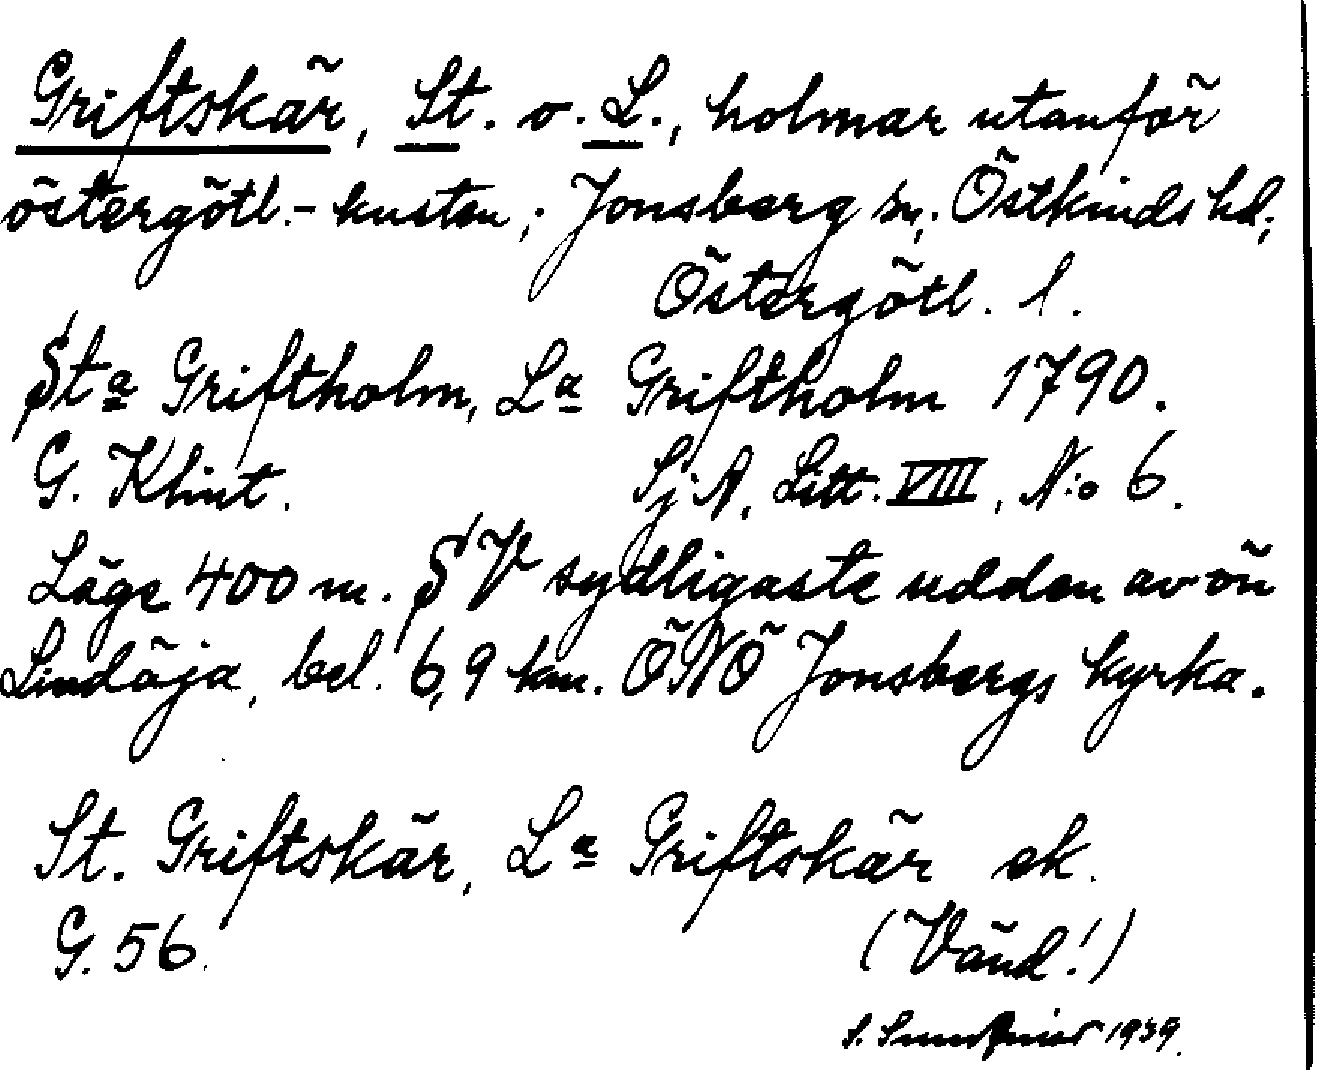 Griftskär, St. o. L., holmar utanför
östergötl.- kusten; Jonsberg sn, Östkinds hd,
Östergötl. l.
Sta Griftholm, La Griftholm 1790.
G. Klint. Sj. A, Litt. VIII, N:o 6.
Läge 400 m. SV sydligaste udden av ön
Lindöja, bel. 6,9 km. ÖNÖ Jonsbergs kyrka.
St. Griftskär, La Griftskär ek.
G. 56.
(Vänd!)
S. 1939.